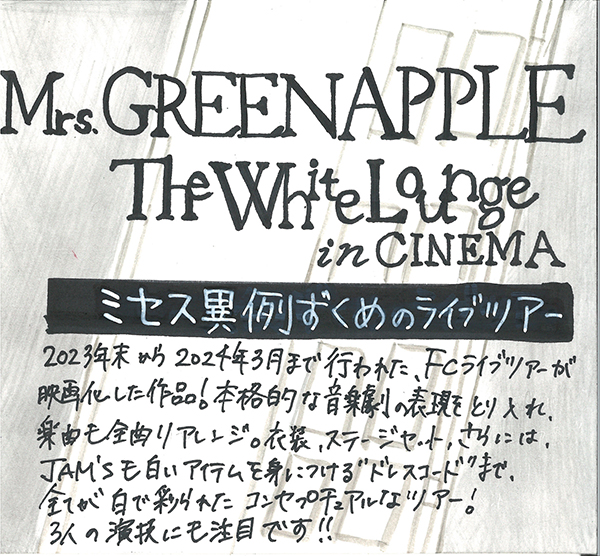 Mrs. GREEN APPLE
The White Lounge
in CINEMA
ミセス異例ずくめのライブツアー
2023年末から2024年3月まで行われた、FCライブツアーが
映画化した作品！本格的な音楽劇の表現をとり入れ、
楽曲も全曲リアレンジ。衣装、ステージセット、さらには、
JAM'Sも白いアイテムを身につける"ドレスコード"まで、
全てが白で彩られたコンセプチュアルなツアー！
3人の演技にも注目です!!